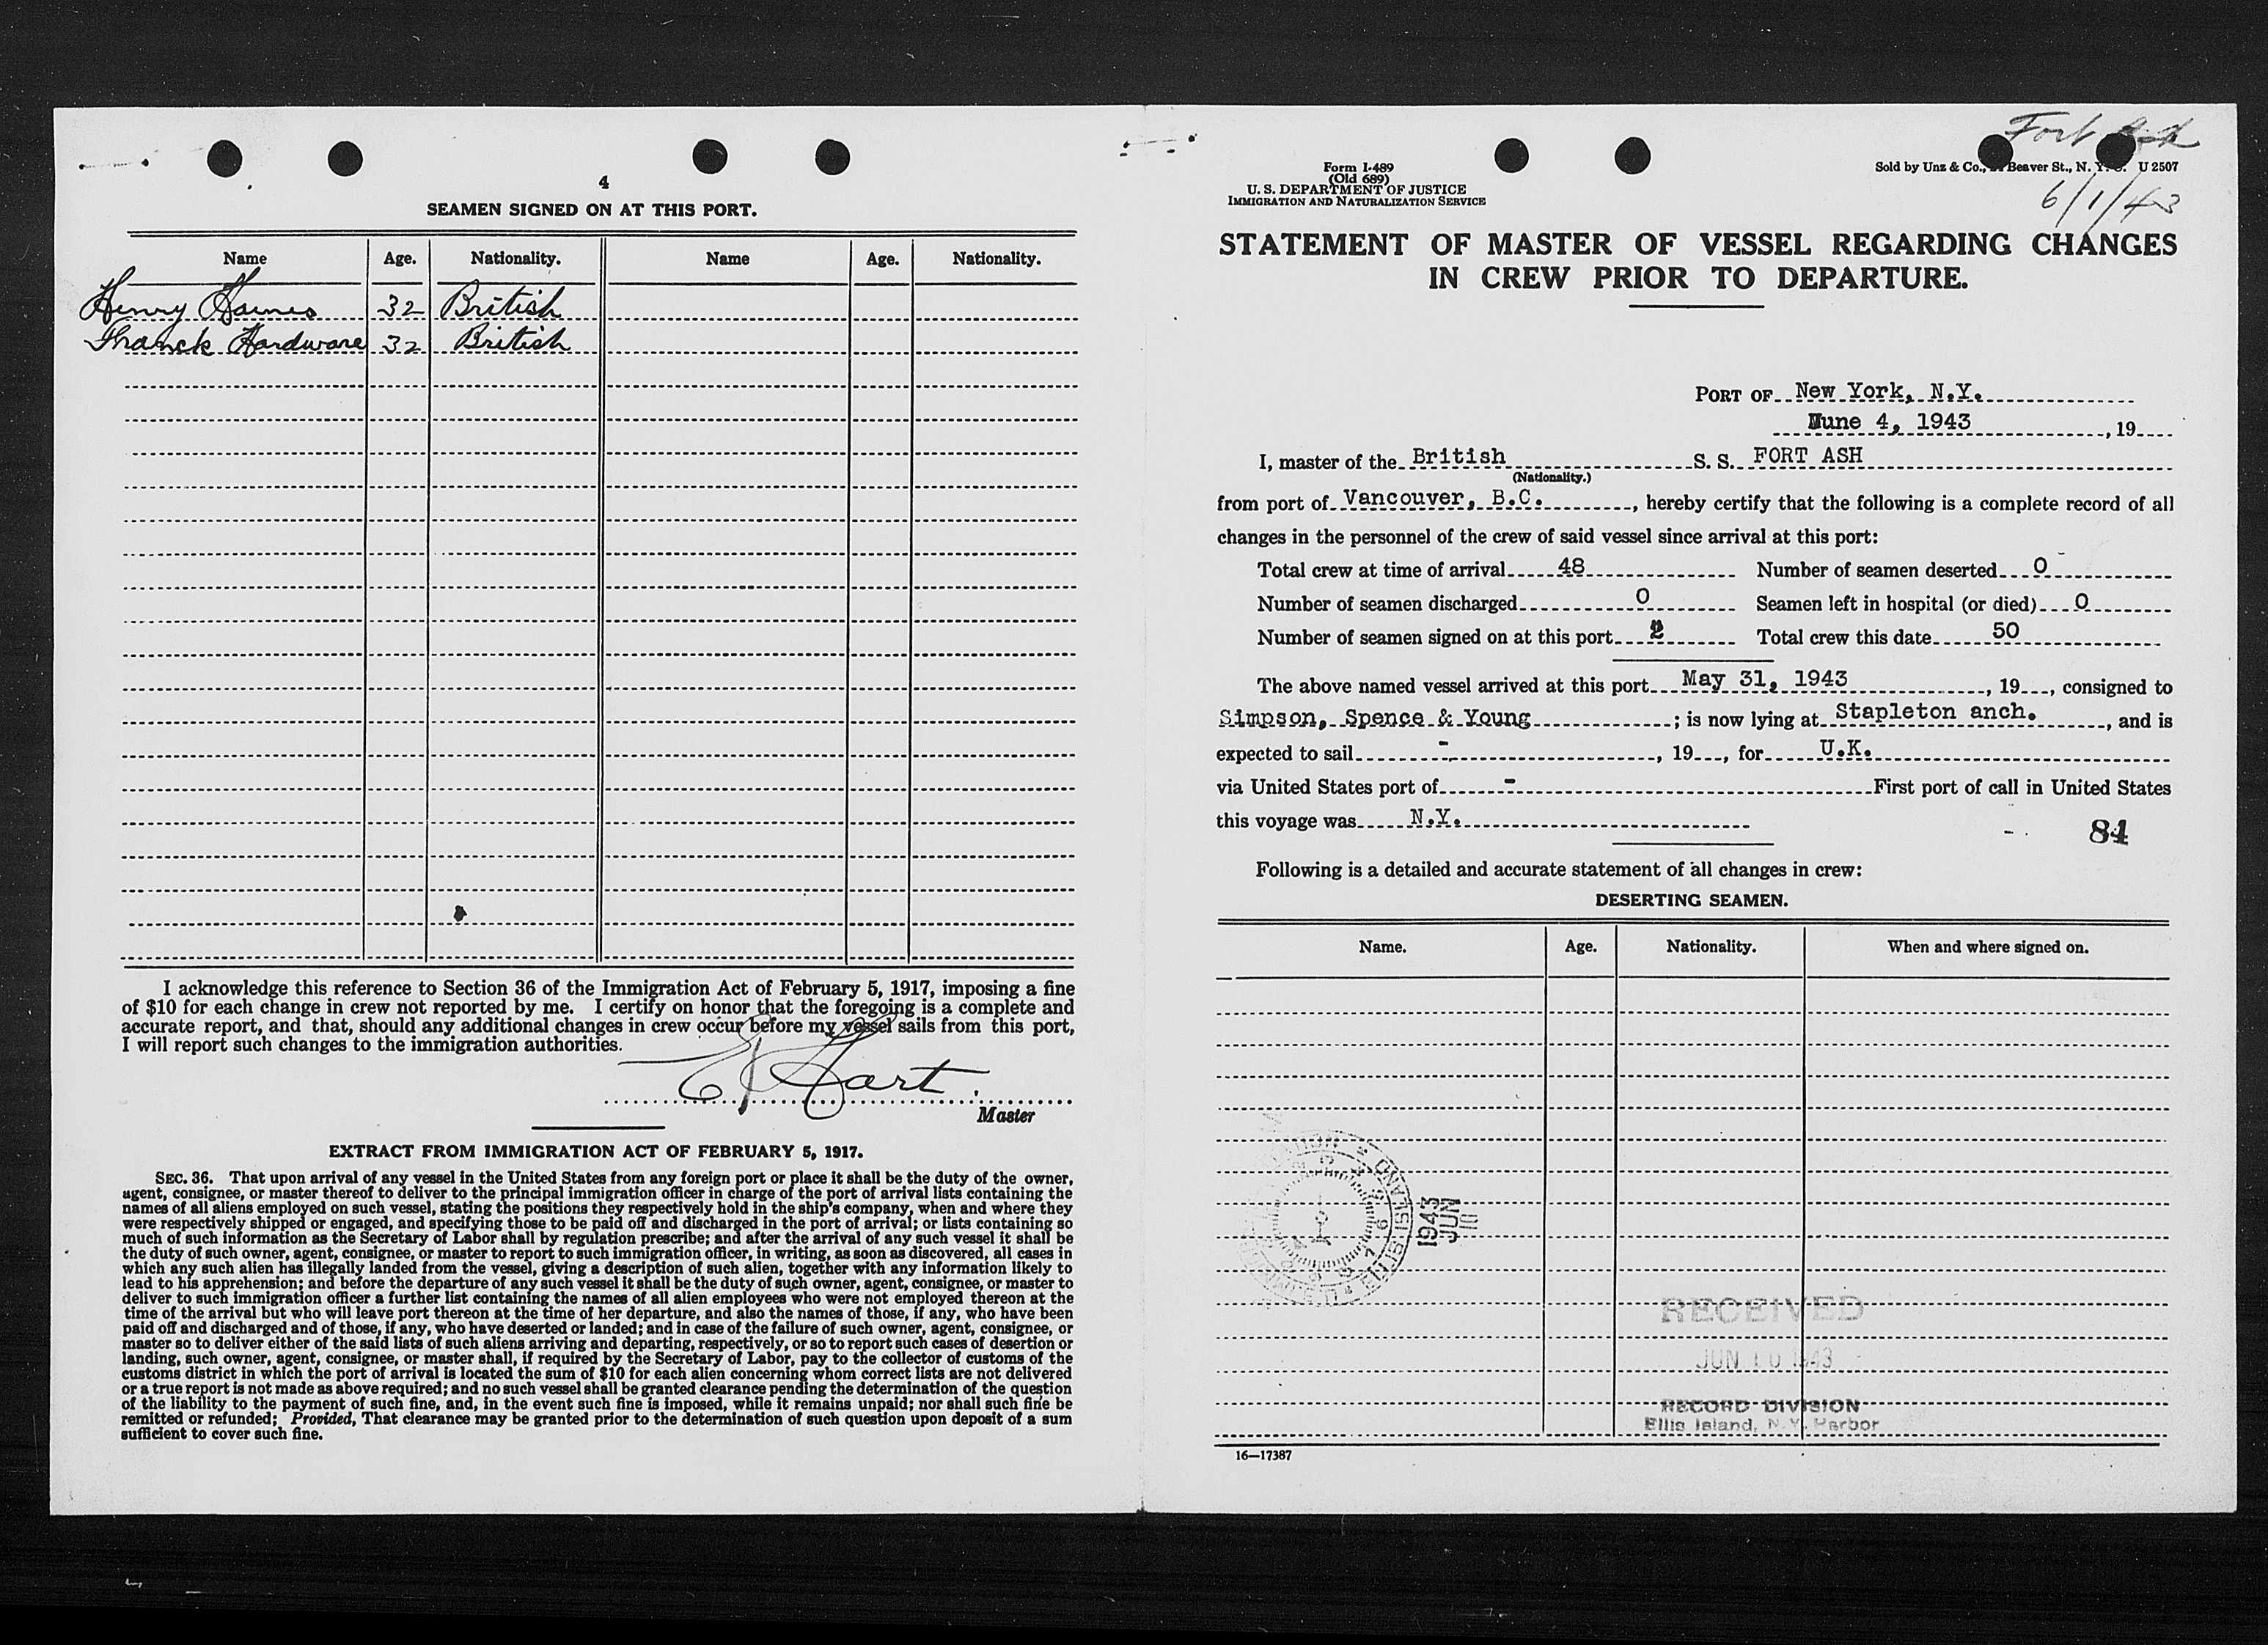 4
SEAMEN SIGNED ON AT THIS PORT.
Name Age. Nationality. Name Age. Nationality.
Henry Haines 32 British
Franck Hardware 32 British
I acknowledge this reference to Section 36 of the Immigration Act of February 5, 1917, imposing a fine
of $10 for each change in crew not reported by me. I certify on honor that the foregoing is a complete and
accurate report, and that, should any additional changes in crew occur before my vessel sails from this port,
I will report such changes to the immigration authorities.
Hart.
Master
EXTRACT FROM IMMIGRATION ACT OF FEBRUARY 5, 1917.
SEC. 36. That upon arrival of any vessel in the United States from any foreign port or place it shall be the duty of the owner,
agent, consignee, or master thereof to deliver to the principal immigration officer in charge of the port of arrival lists containing the
names of all aliens employed on such vessel, stating the positions they respectively hold in the ship's company, when and where they
were respectively shipped or engaged, and specifying those to be paid off and discharged in the port of arrival; or lists containing so
much of such information as the Secretary of Labor shall by regulation prescribe; and after the arrival of any such vessel it shall be
the duty of such owner, agent, consignee, or master to report to such immigration officer, in writing, as soon as discovered, all cases in
which any such alien has illegally landed from the vessel, giving a description of such alien, together with any information likely to
lead to his apprehension; and before the departure of any such vessel it shall be the duty of such owner, agent, consignee, or master to
deliver to such immigration officer a further list containing the names of all alien employees who were not employed thereon at the
time of the arrival but who will leave port thereon at the time of her departure, and also the names of those, if any, who have been
paid off and discharged and of those, if any, who have deserted or landed; and in case of the failure of such owner, agent, consignee, or
master so to deliver either of the said lists of such aliens arriving and departing, respectively, or so to report such cases of desertion or
landing, such owner, agent, consignee, or master shall, if required by the Secretary of Labor, pay to the collector of customs of the
customs district in which the port of arrival is located the sum of $10 for each alien concerning whom correct lists are not delivered
or a true report is not made as above required; and no such vessel shall be granted clearance pending the determination of the question
of the liability to the payment of such fine, and, in the event such fine is imposed, while it remains unpaid; nor shall such fine be
remitted or refunded; Provided, That clearance may be granted prior to the determination of such question upon deposit of a sum
sufficient to cover such fine.
Fort Ash
Form I-489
(Old 689)
U. S. DEPARTMENT OF JUSTICE
IMMIGRATION AND NATURALIZATION SERVICE
Sold by Unz & Co., Beaver St., N. Y. U 2507
6/1/43
STATEMENT OF MASTER OF VESSEL REGARDING CHANGES
IN CREW PRIOR TO DEPARTURE.
PORT OF New York, N.Y.
June 4, 1943, 19
I, master of the British S. S. FORT ASH
(Nationality.)
from port of Vancouver, B.C., hereby certify that the following is a complete record of all
changes in the personnel of the crew of said vessel since arrival at this port:
Total crew at time of arrival 48 Number of seamen deserted 0
Number of seamen discharged 0 Seamen left in hospital (or died) 0
Number of seamen signed on at this port 2 Total crew this date 50
The above named vessel arrived at this port May 31, 1943, 19, consigned to
Simpson, Spence & Young; is now lying at Stapleton anch., and is
expected to sail -, 19, for U.K.
via United States port of - First port of call in United States
this voyage was N.Y.
84
Following is a detailed and accurate statement of all changes in crew:
DESERTING SEAMEN.
Name. Age. Nationality. When and where signed on.
ELLIS ISLAND
1943
JUN
10
RECEIVED
JUN 10 1943
RECORD DIVISION
Ellis Island, N.Y. Harbor
16—17387